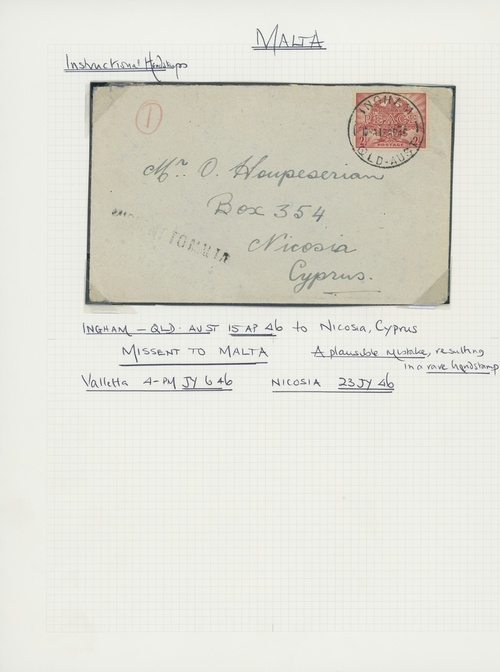 MALTA
Instructional Handstamps
1
INGHEM
PEACE
POSTAGE
QLD-AUS
Mr. O. Houpeserian
Box 354
Nicosia
Cyprus.
TO MALTA
INGHAM - QLD. AUST 15 AP 46 to NICOSIA, CYPRUS
MISSENT TO MALTA
A plausible mistake, resulting
in a rare handstamp
Valletta 4-PM JY 6 46
NICOSIA 23 JY 46